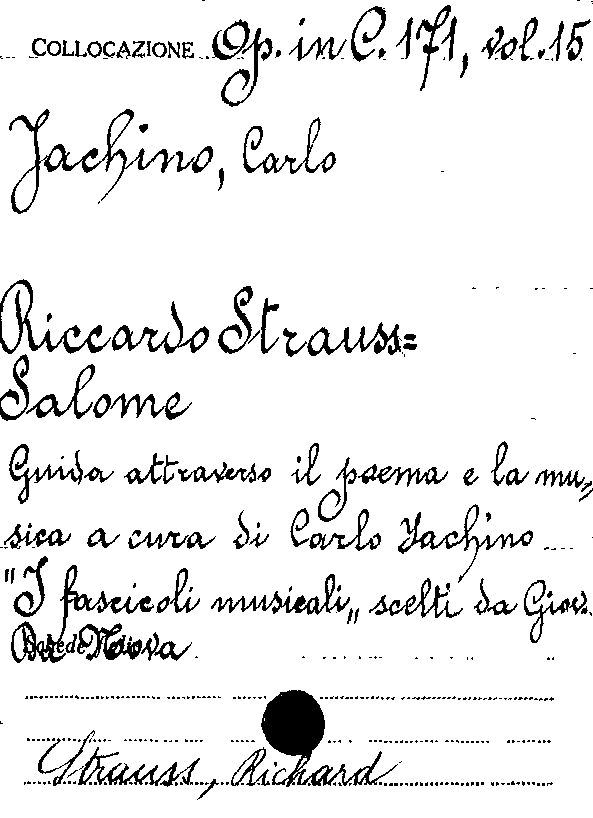 COLLOCAZIONE Op. in C. 171, vol. 15
Jachino, Carlo
Riccardo Strauss=
Salome
Guida attraverso il poema e la mu„
sica a cura di Carlo Jachino
"I fascicoli musicali„ scelti da Giov.
Da Nova
Strauss, Richard